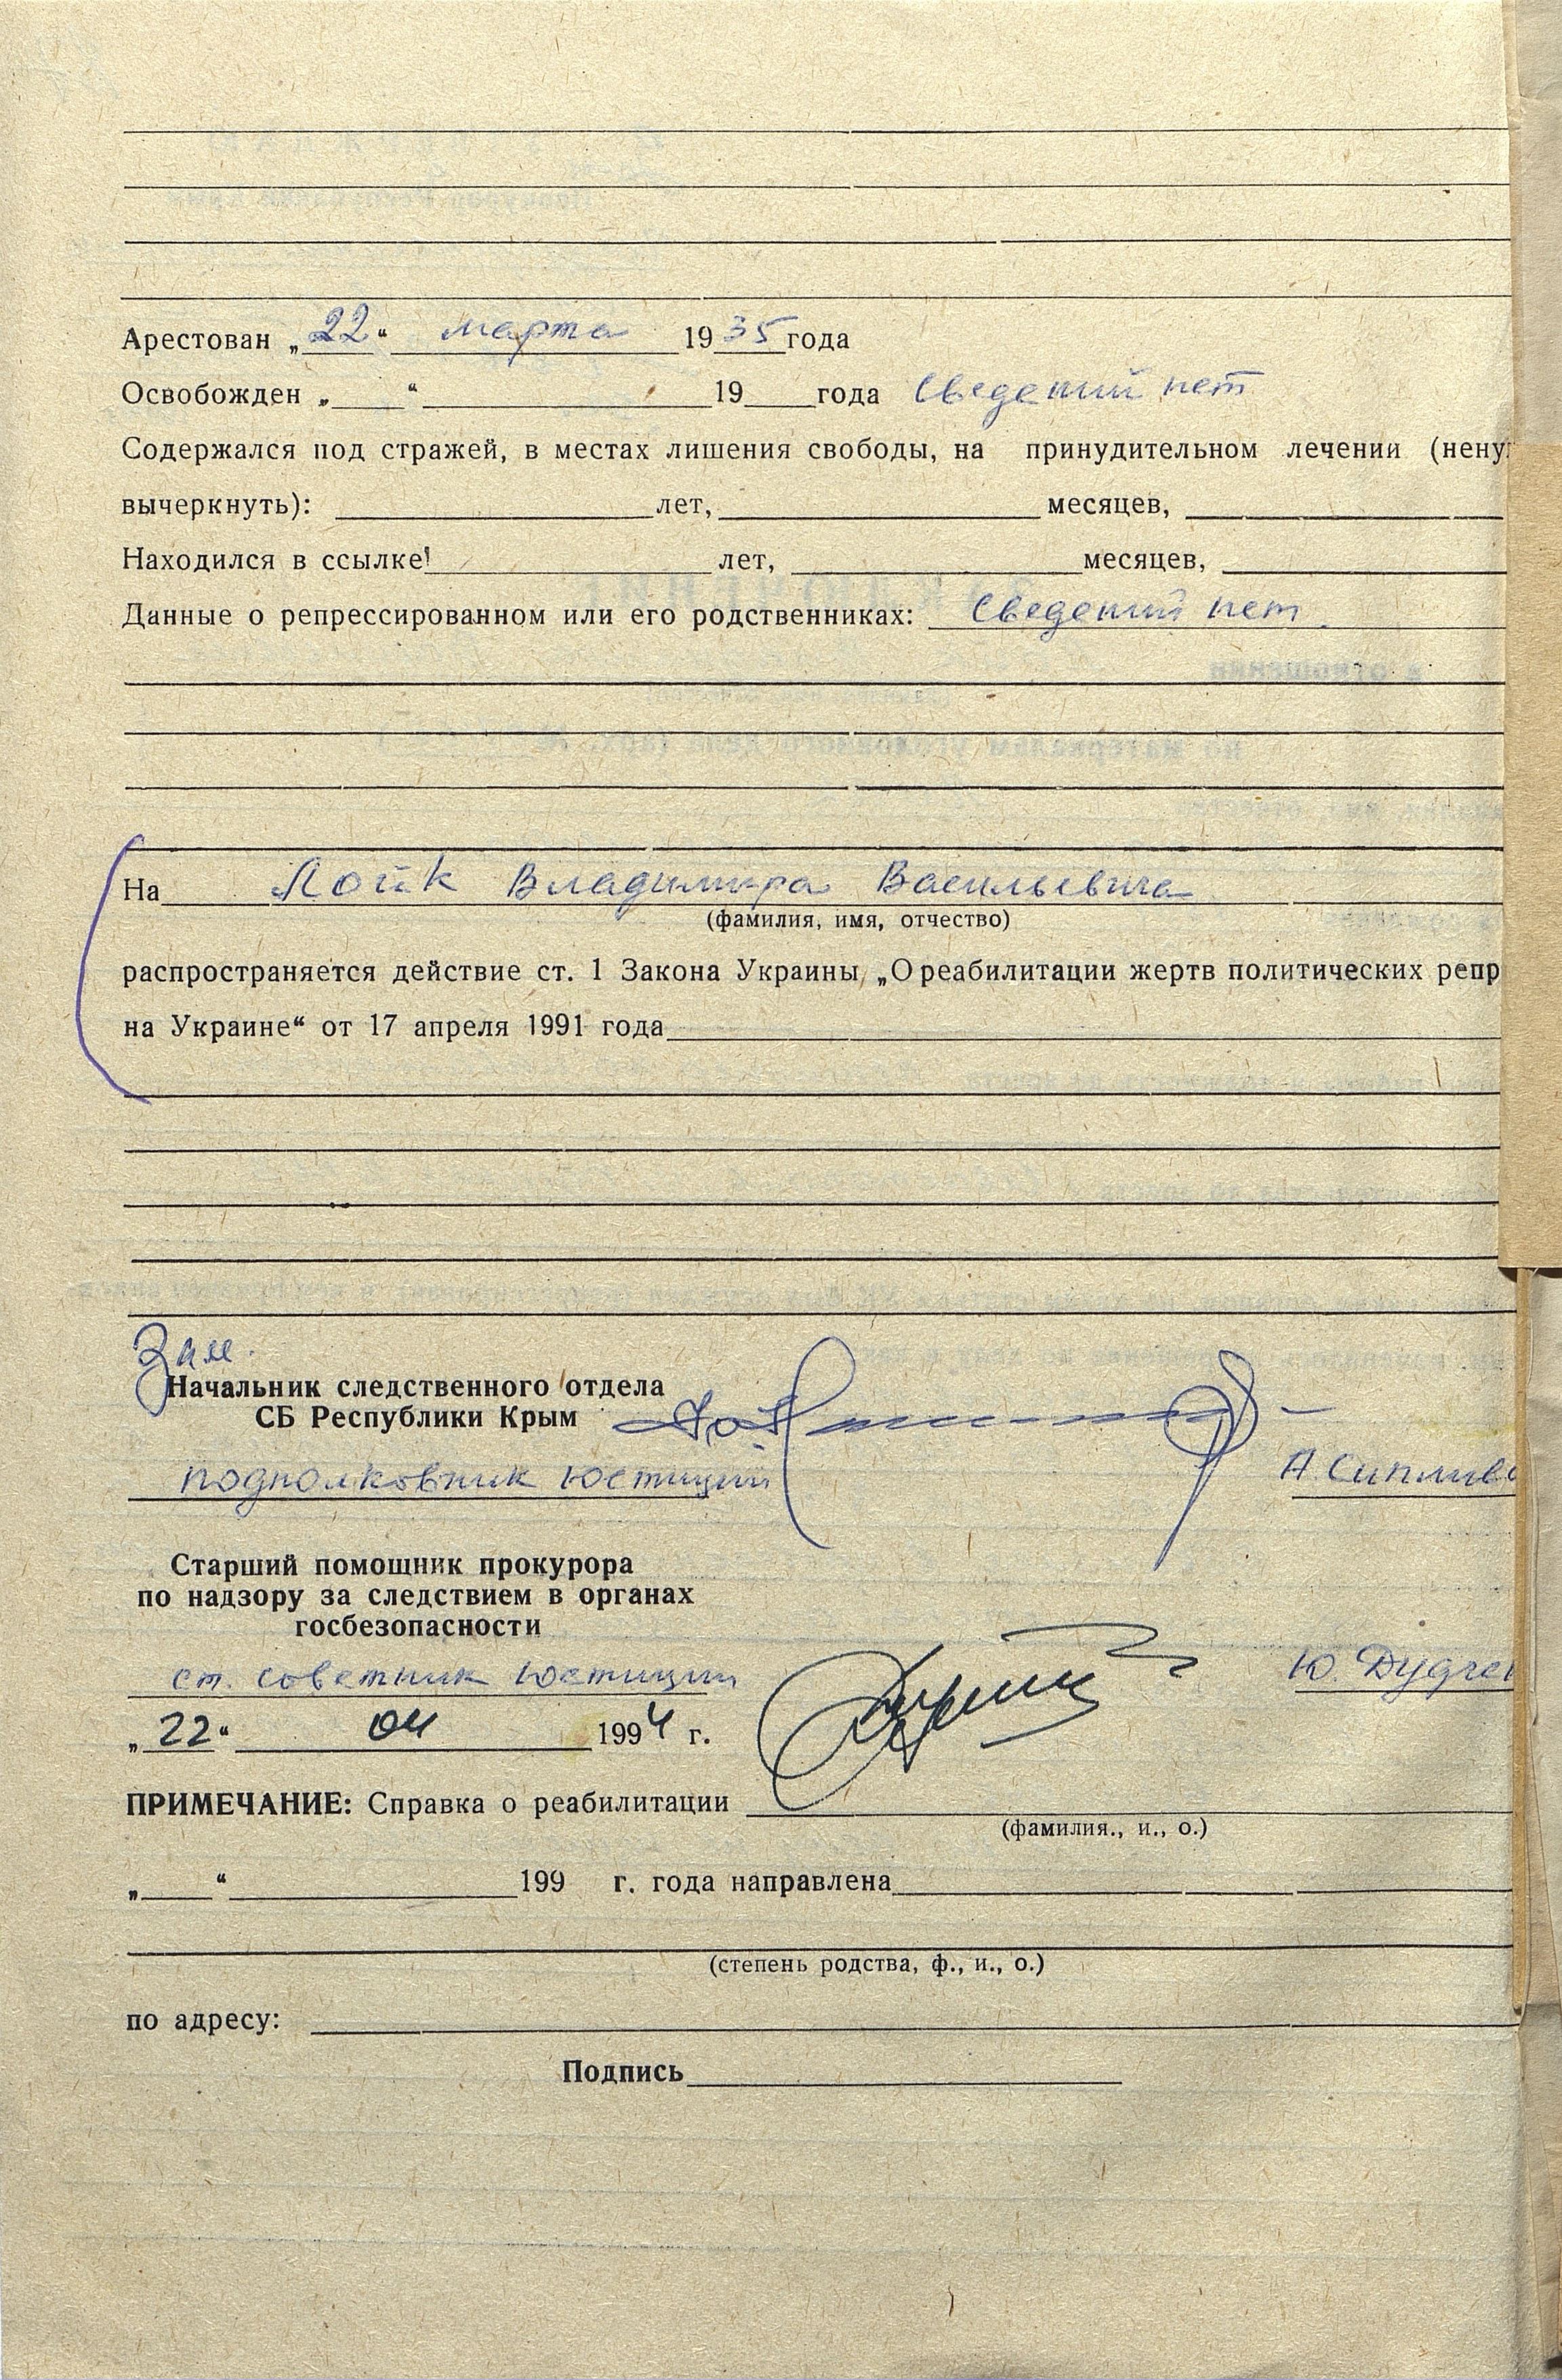 Арестован „22“ марта 1935 года
Освобожден „____“ ____ 19____года Сведений нет
Содержался под стражей, в местах лишения свободы, на принудительном лечении (нену
вычеркнуть): ____ лет, ____ месяцев, ____
Находился в ссылке! ____ лет, ____ месяцев, ____
Данные о репрессированном или его родственниках: Сведений нет.
На Лойк Владимира Васильевича
(фамилия, имя, отчество)
распространяется действие ст. 1 Закона Украины „О реабилитации жертв политических репр
на Украине“ от 17 апреля 1991 года
Зам.
Начальник следственного отдела
СБ Республики Крым
подполковник юстиции
А. Сипливо
Старший помощник прокурора
по надзору за следствием в органах
госбезопасности
ст. советник юстиции
Ю. Дудчен
„22“ 04 1994 г.
ПРИМЕЧАНИЕ: Справка о реабилитации
(фамилия., и., о.)
„____“ ____ 199 г. года направлена
(степень родства, ф., и., о.)
по адресу:
Подпись